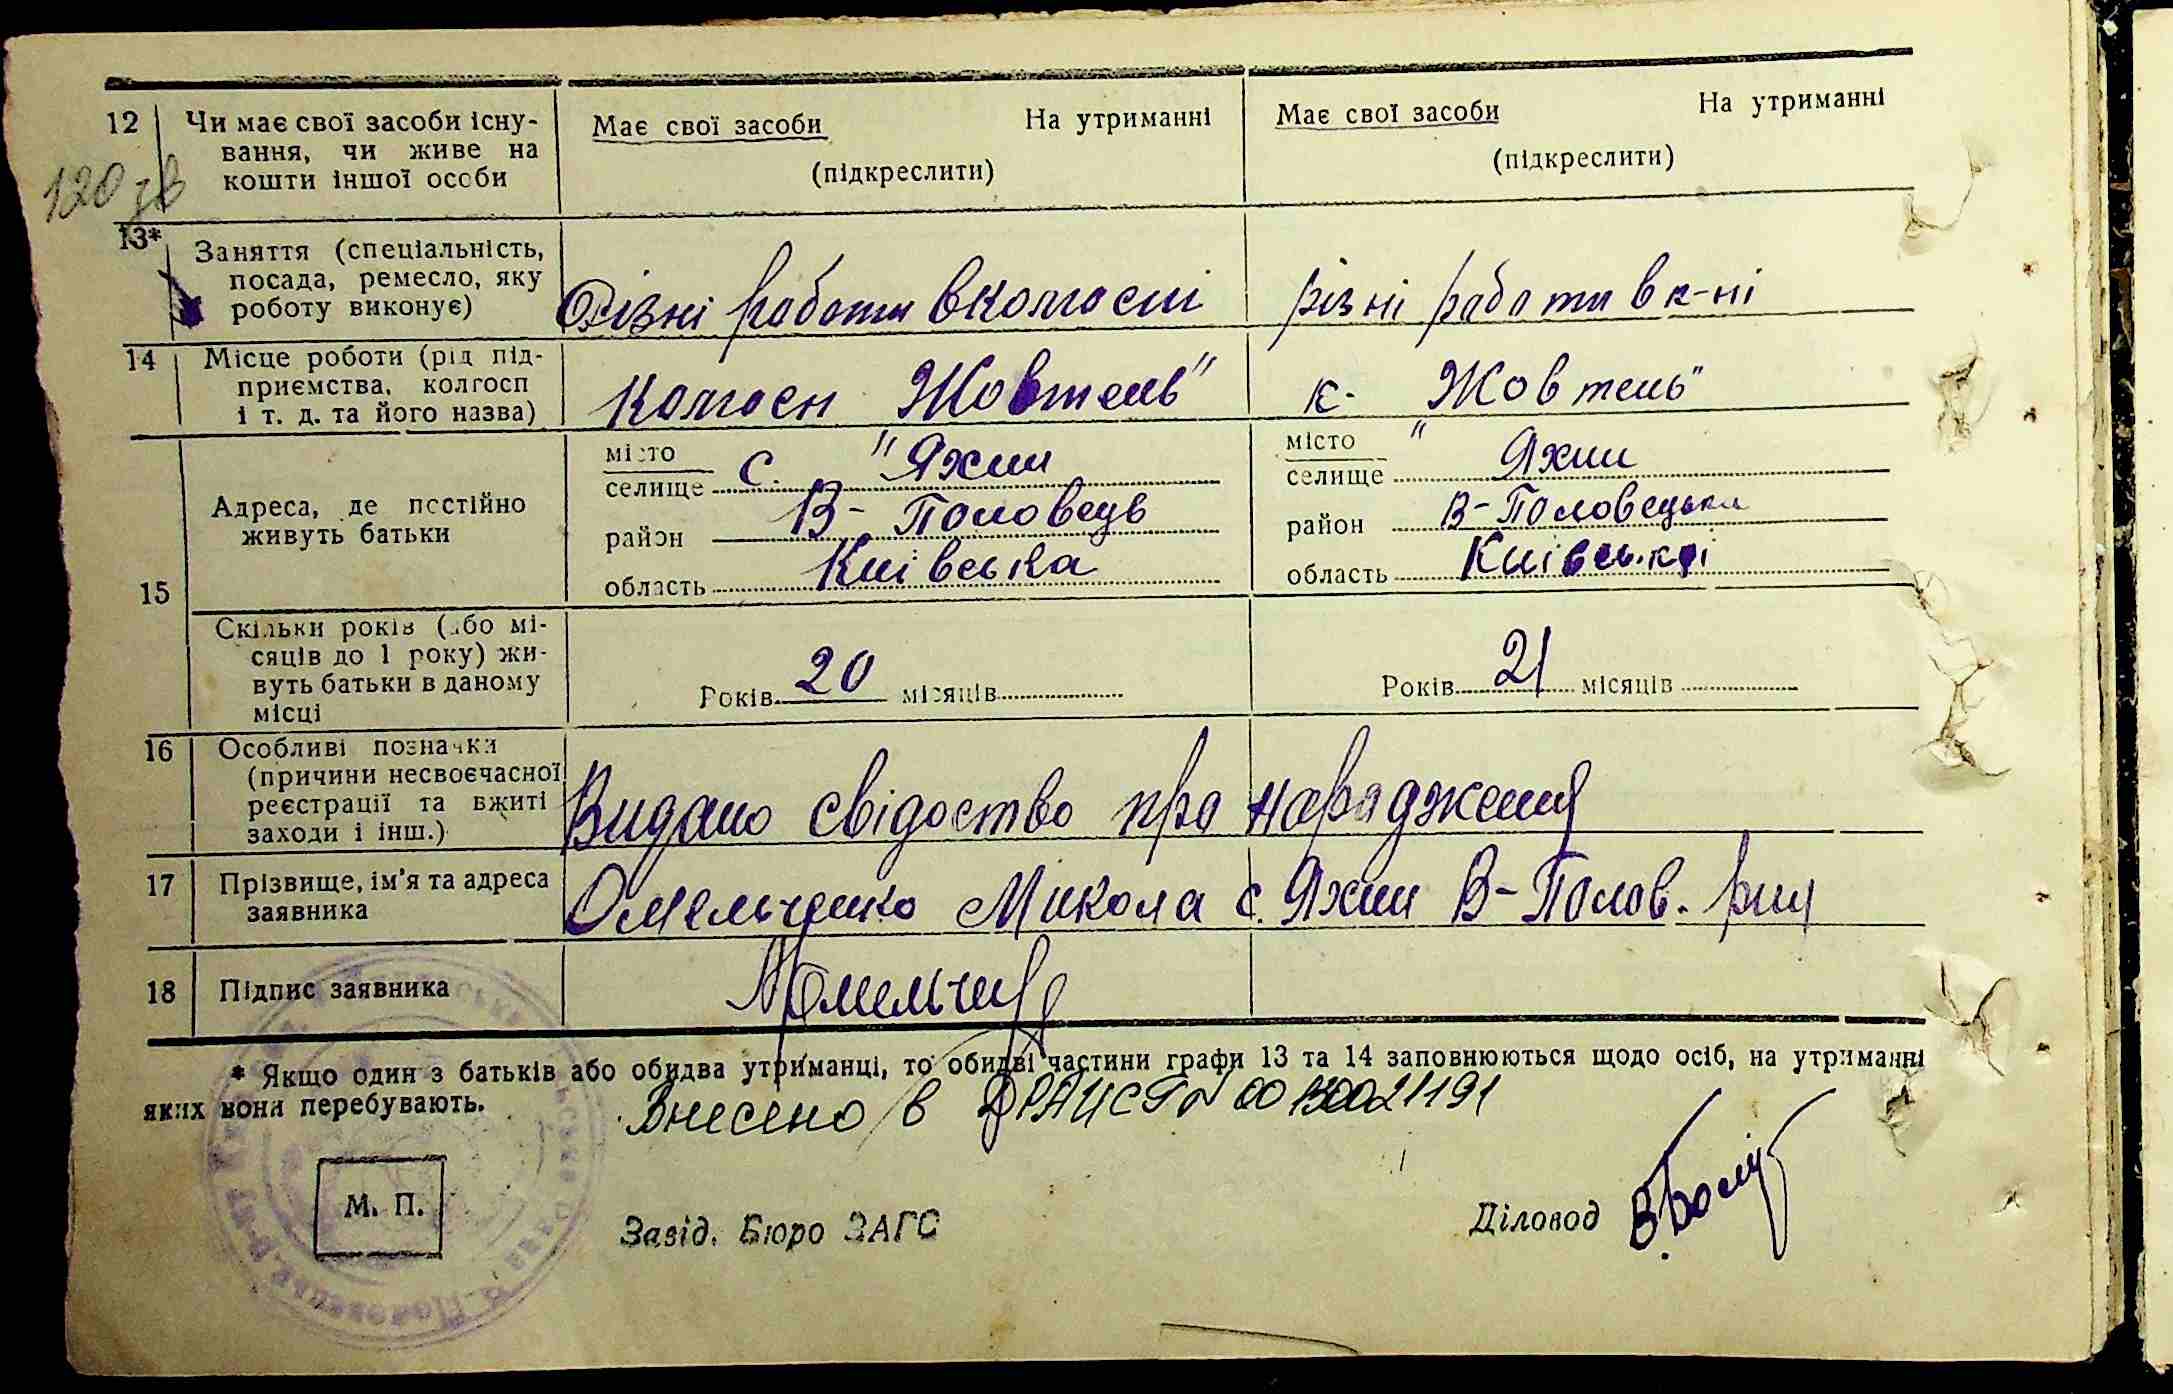 12 Чи має свої засоби існу-
вання, чи живе на
кошти іншої особи
Має свої засоби На утриманні
(підкреслити)
Має свої засоби На утриманні
(підкреслити)
120 зв
13* Заняття (спеціальність,
посада, ремесло, яку
роботу виконує)
Різні работи в колгоспі
різні работи в к-пі
14 Місце роботи (рід під-
приємства, колгосп
і т. д. та його назва)
Колгосп Жовтень"
к. "Жовтень"
15 Адреса, де постійно
живуть батьки
місто
селище с. "Яхни
район В-Половець
область Київська
місто
селище Яхни
район В-Половецьки
область Київської
Скільки років (або мі-
сяців до 1 року) жи-
вуть батьки в даному
місці
Років 20 місяців
Років 21 місяців
16 Особливі позначки
(причини несвоєчасної
реєстрації та вжиті
заходи і інш.)
Видано свідоство про народження
17 Прізвище, ім'я та адреса
заявника
Омельченко Микола с. Яхни В-Полов. р-ну
18 Підпис заявника
* Якщо один з батьків або обидва утриманці, то обидві частини графи 13 та 14 заповнюються щодо осіб, на утриманні
яких вони перебувають.
Внесено в ДРАЦСГ № 00130021191
М. П.
Завід. Бюро ЗАГС
Діловод